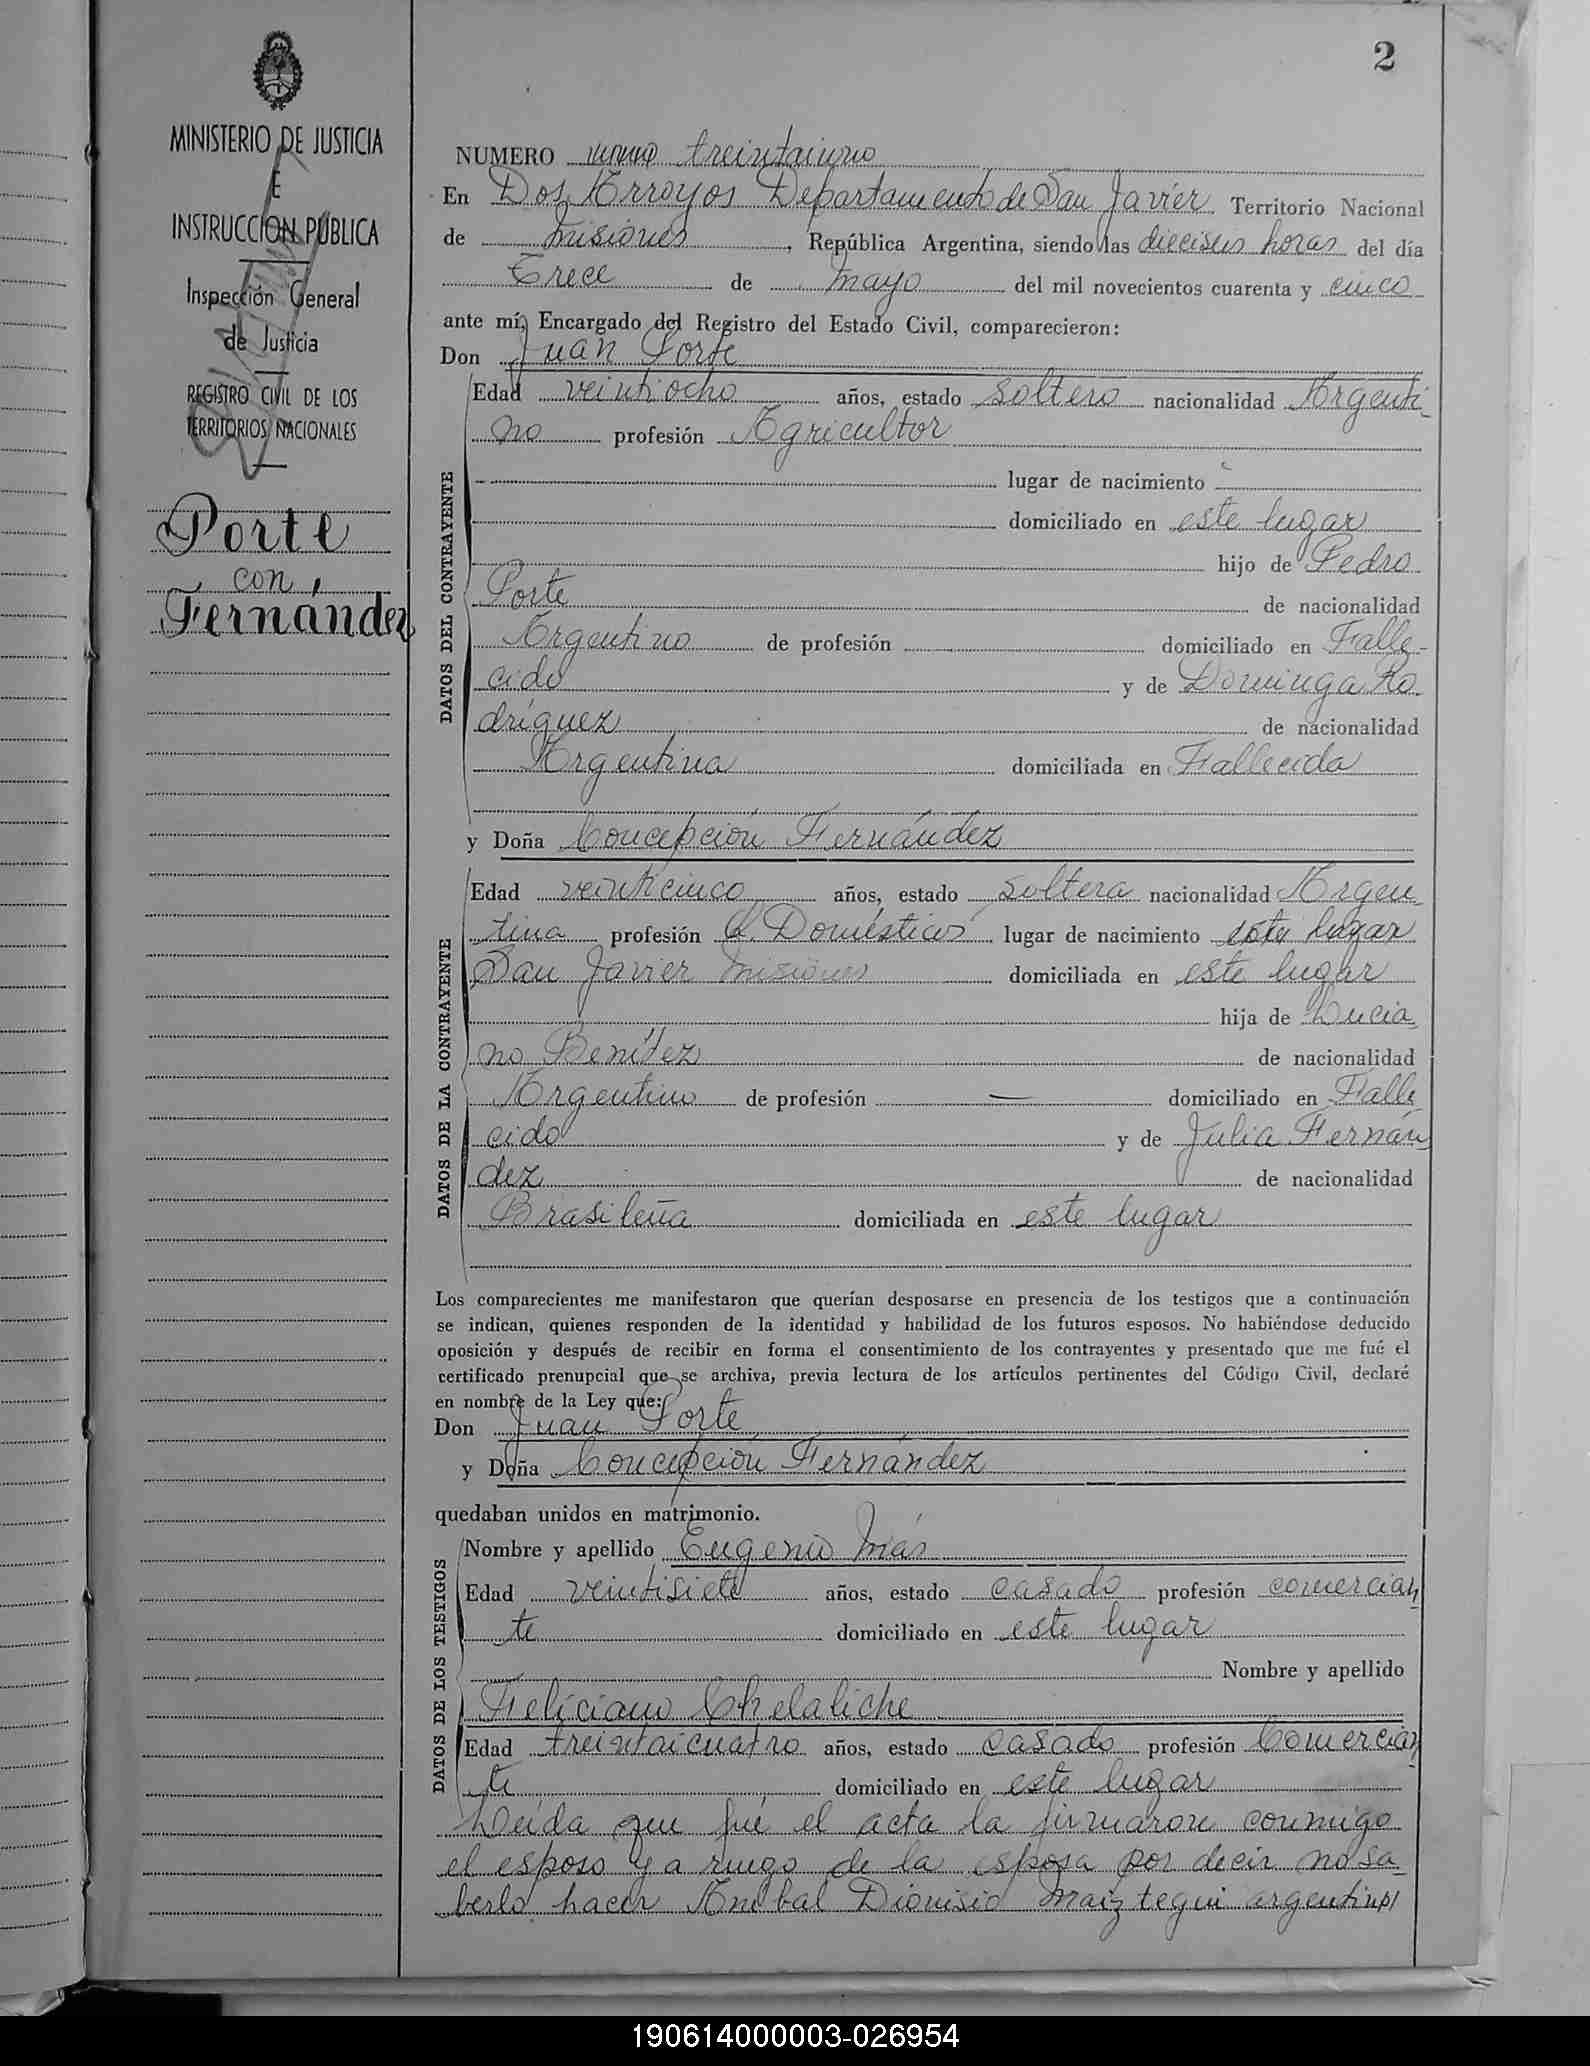 2
MINISTERIO DE JUSTICIA
E
INSTRUCCIÓN PÚBLICA
Inspección General
de Justicia
REGISTRO CIVIL DE LOS
TERRITORIOS NACIONALES
Porte
con
Fernández
NUMERO treintaiuno
En Dos Arroyos Departamento de San Javier Territorio Nacional
de Misiones, República Argentina, siendo las dieciseis horas del día
Trece de Mayo del mil novecientos cuarenta y cinco
ante mí, Encargado del Registro del Estado Civil, comparecieron:
Don Juan Porte
DATOS DEL CONTRAYENTE
Edad veintiocho años, estado soltero nacionalidad Argenti-
no profesión Agricultor
lugar de nacimiento
domiciliado en este lugar
hijo de Pedro
Porte de nacionalidad
Argentino de profesión domiciliado en Falle-
cido y de Dominga Ro-
dríguez de nacionalidad
Argentina domiciliada en Fallecida
y Doña Concepción Fernández
DATOS DE LA CONTRAYENTE
Edad veinticinco años, estado soltera nacionalidad Argen-
tina profesión Q. Domésticos lugar de nacimiento este lugar
San Javier Misiones domiciliada en este lugar
hija de Lucia-
no Benítez de nacionalidad
Argentino de profesión — domiciliado en Falle
cido y de Julia Fernán
dez de nacionalidad
Brasileña domiciliada en este lugar
Los comparecientes me manifestaron que querían desposarse en presencia de los testigos que a continuación
se indican, quienes responden de la identidad y habilidad de los futuros esposos. No habiéndose deducido
oposición y después de recibir en forma el consentimiento de los contrayentes y presentado que me fué el
certificado prenupcial que se archiva, previa lectura de los artículos pertinentes del Código Civil, declaré
en nombre de la Ley que:
Don Juan Porte
y Doña Concepción Fernández
quedaban unidos en matrimonio.
DATOS DE LOS TESTIGOS
Nombre y apellido Eugenio
Edad veintisiete años, estado casado profesión comercian
te domiciliado en este lugar
Nombre y apellido
Feliciano Chelaliche
Edad treintaicuatro años, estado casado profesión Comercian
te domiciliado en este lugar
Leída que fué el acta la firmaron conmigo
el esposo y a ruego de la esposa por decir no sa-
berlo hacer Anibal Dionisio Maiztegui argentino
190614000003-026954